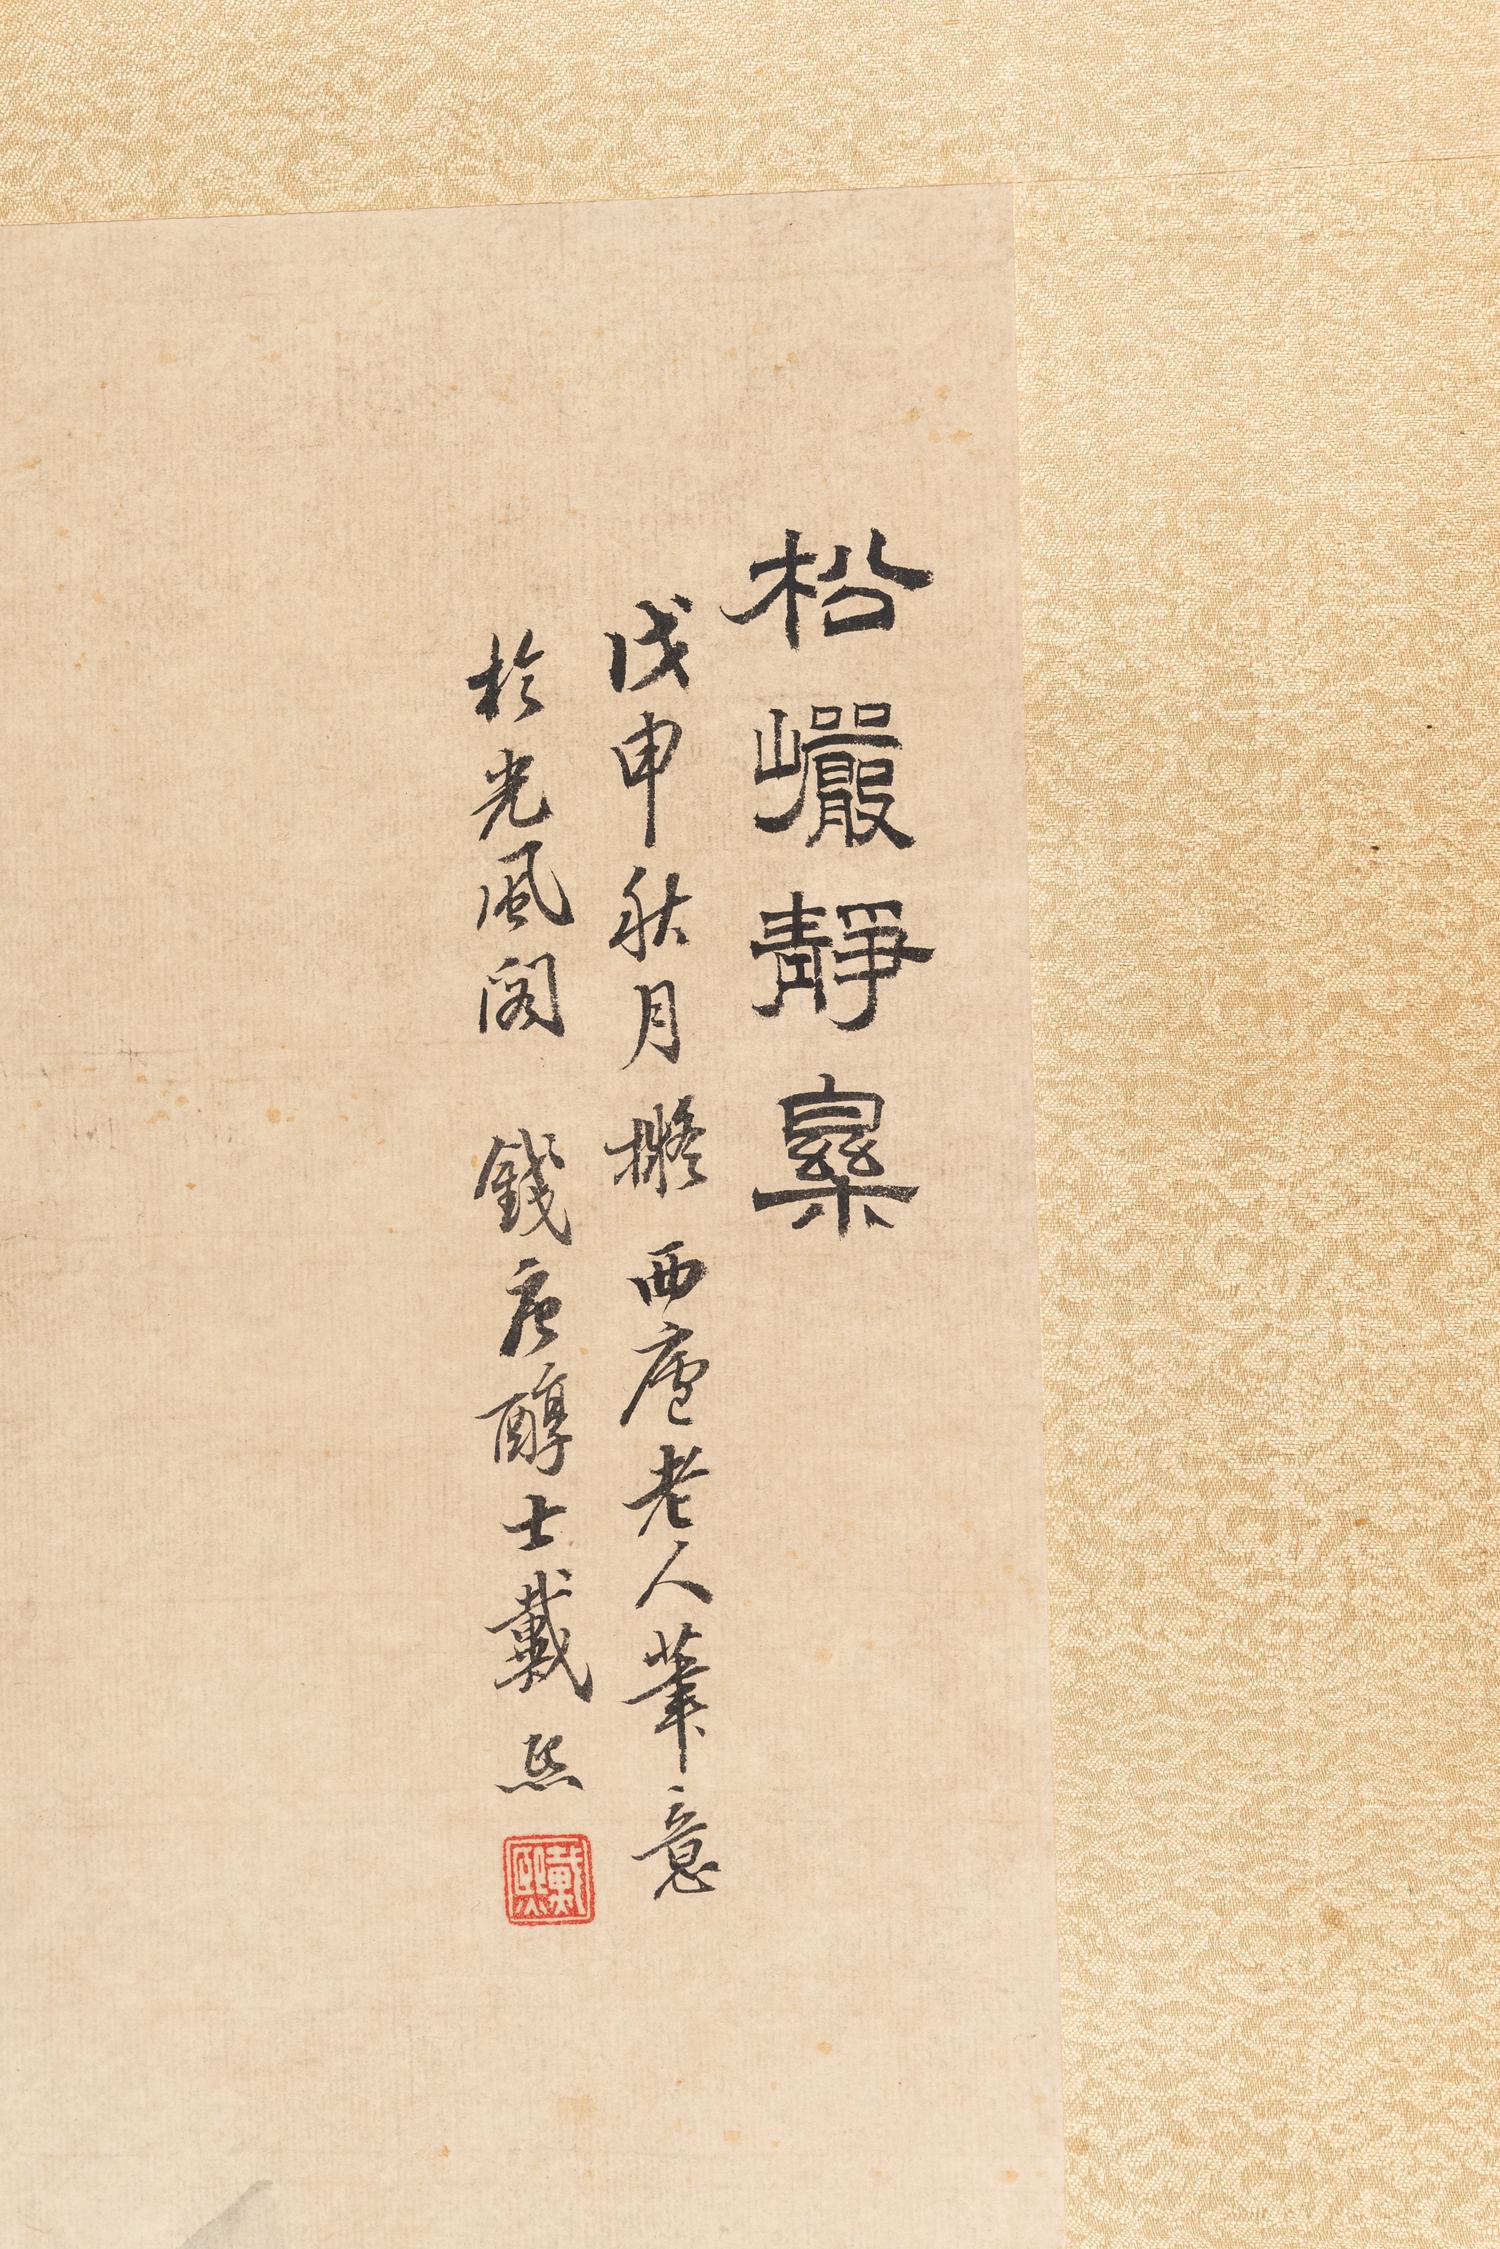 松巗靜樂
戊申秋月擬西廬老人筆意
於光風閣 錢唐醇士戴熙
戴熙